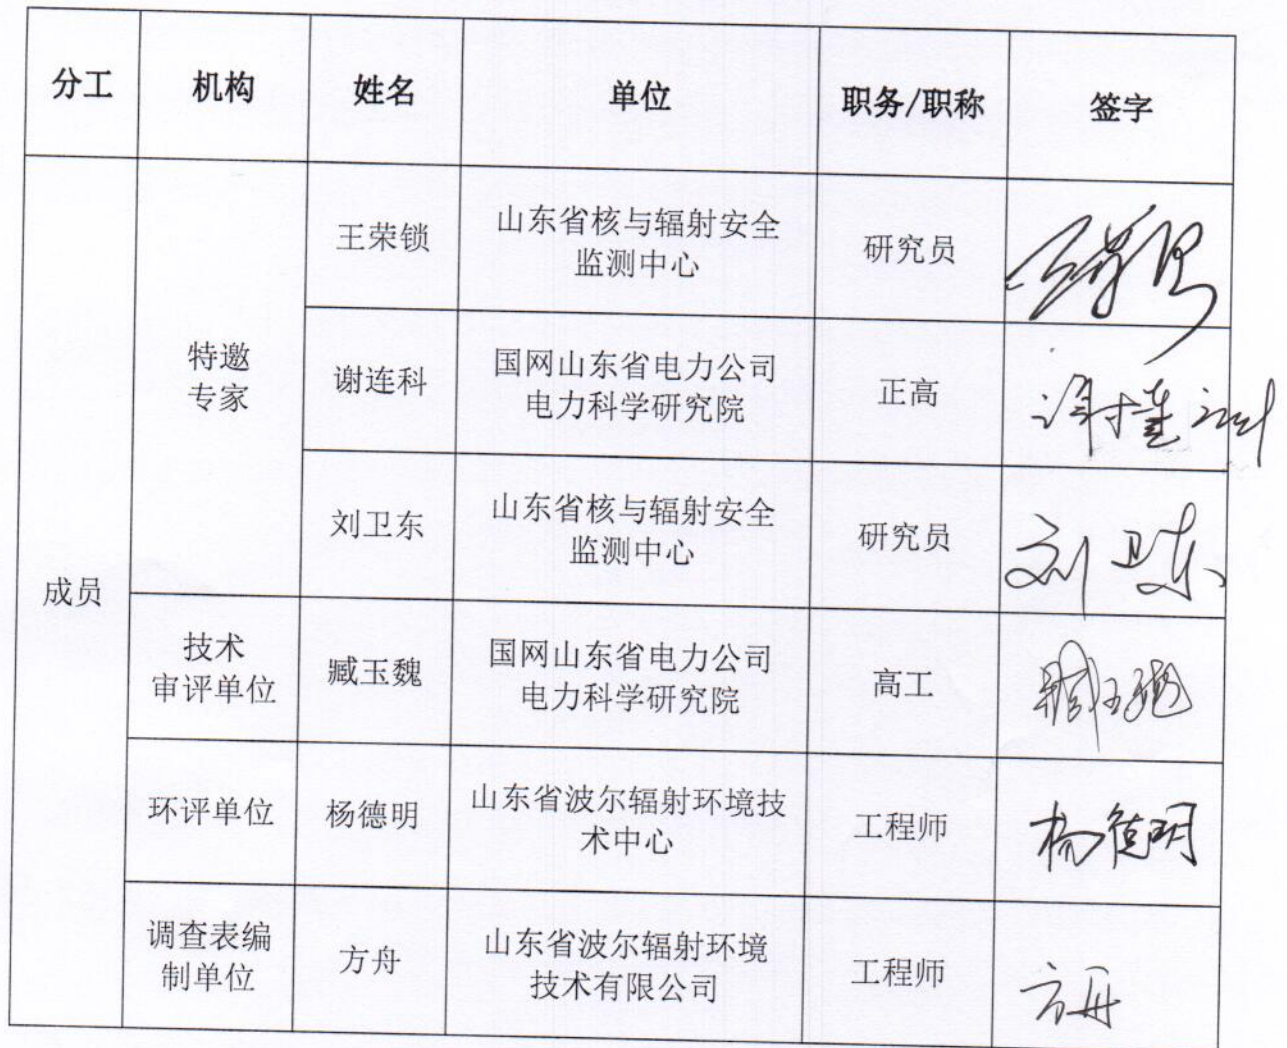 分工 机构 姓名 单位 职务/职称 签字
成员
特邀
专家
王荣锁
山东省核与辐射安全
监测中心
研究员
谢连科
国网山东省电力公司
电力科学研究院
正高
刘卫东
山东省核与辐射安全
监测中心
研究员
刘卫东
技术
审评单位
臧玉魏
国网山东省电力公司
电力科学研究院
高工
臧玉魏
环评单位
杨德明
山东省波尔辐射环境技
术中心
工程师
杨德明
调查表编
制单位
方舟
山东省波尔辐射环境
技术有限公司
工程师
方舟